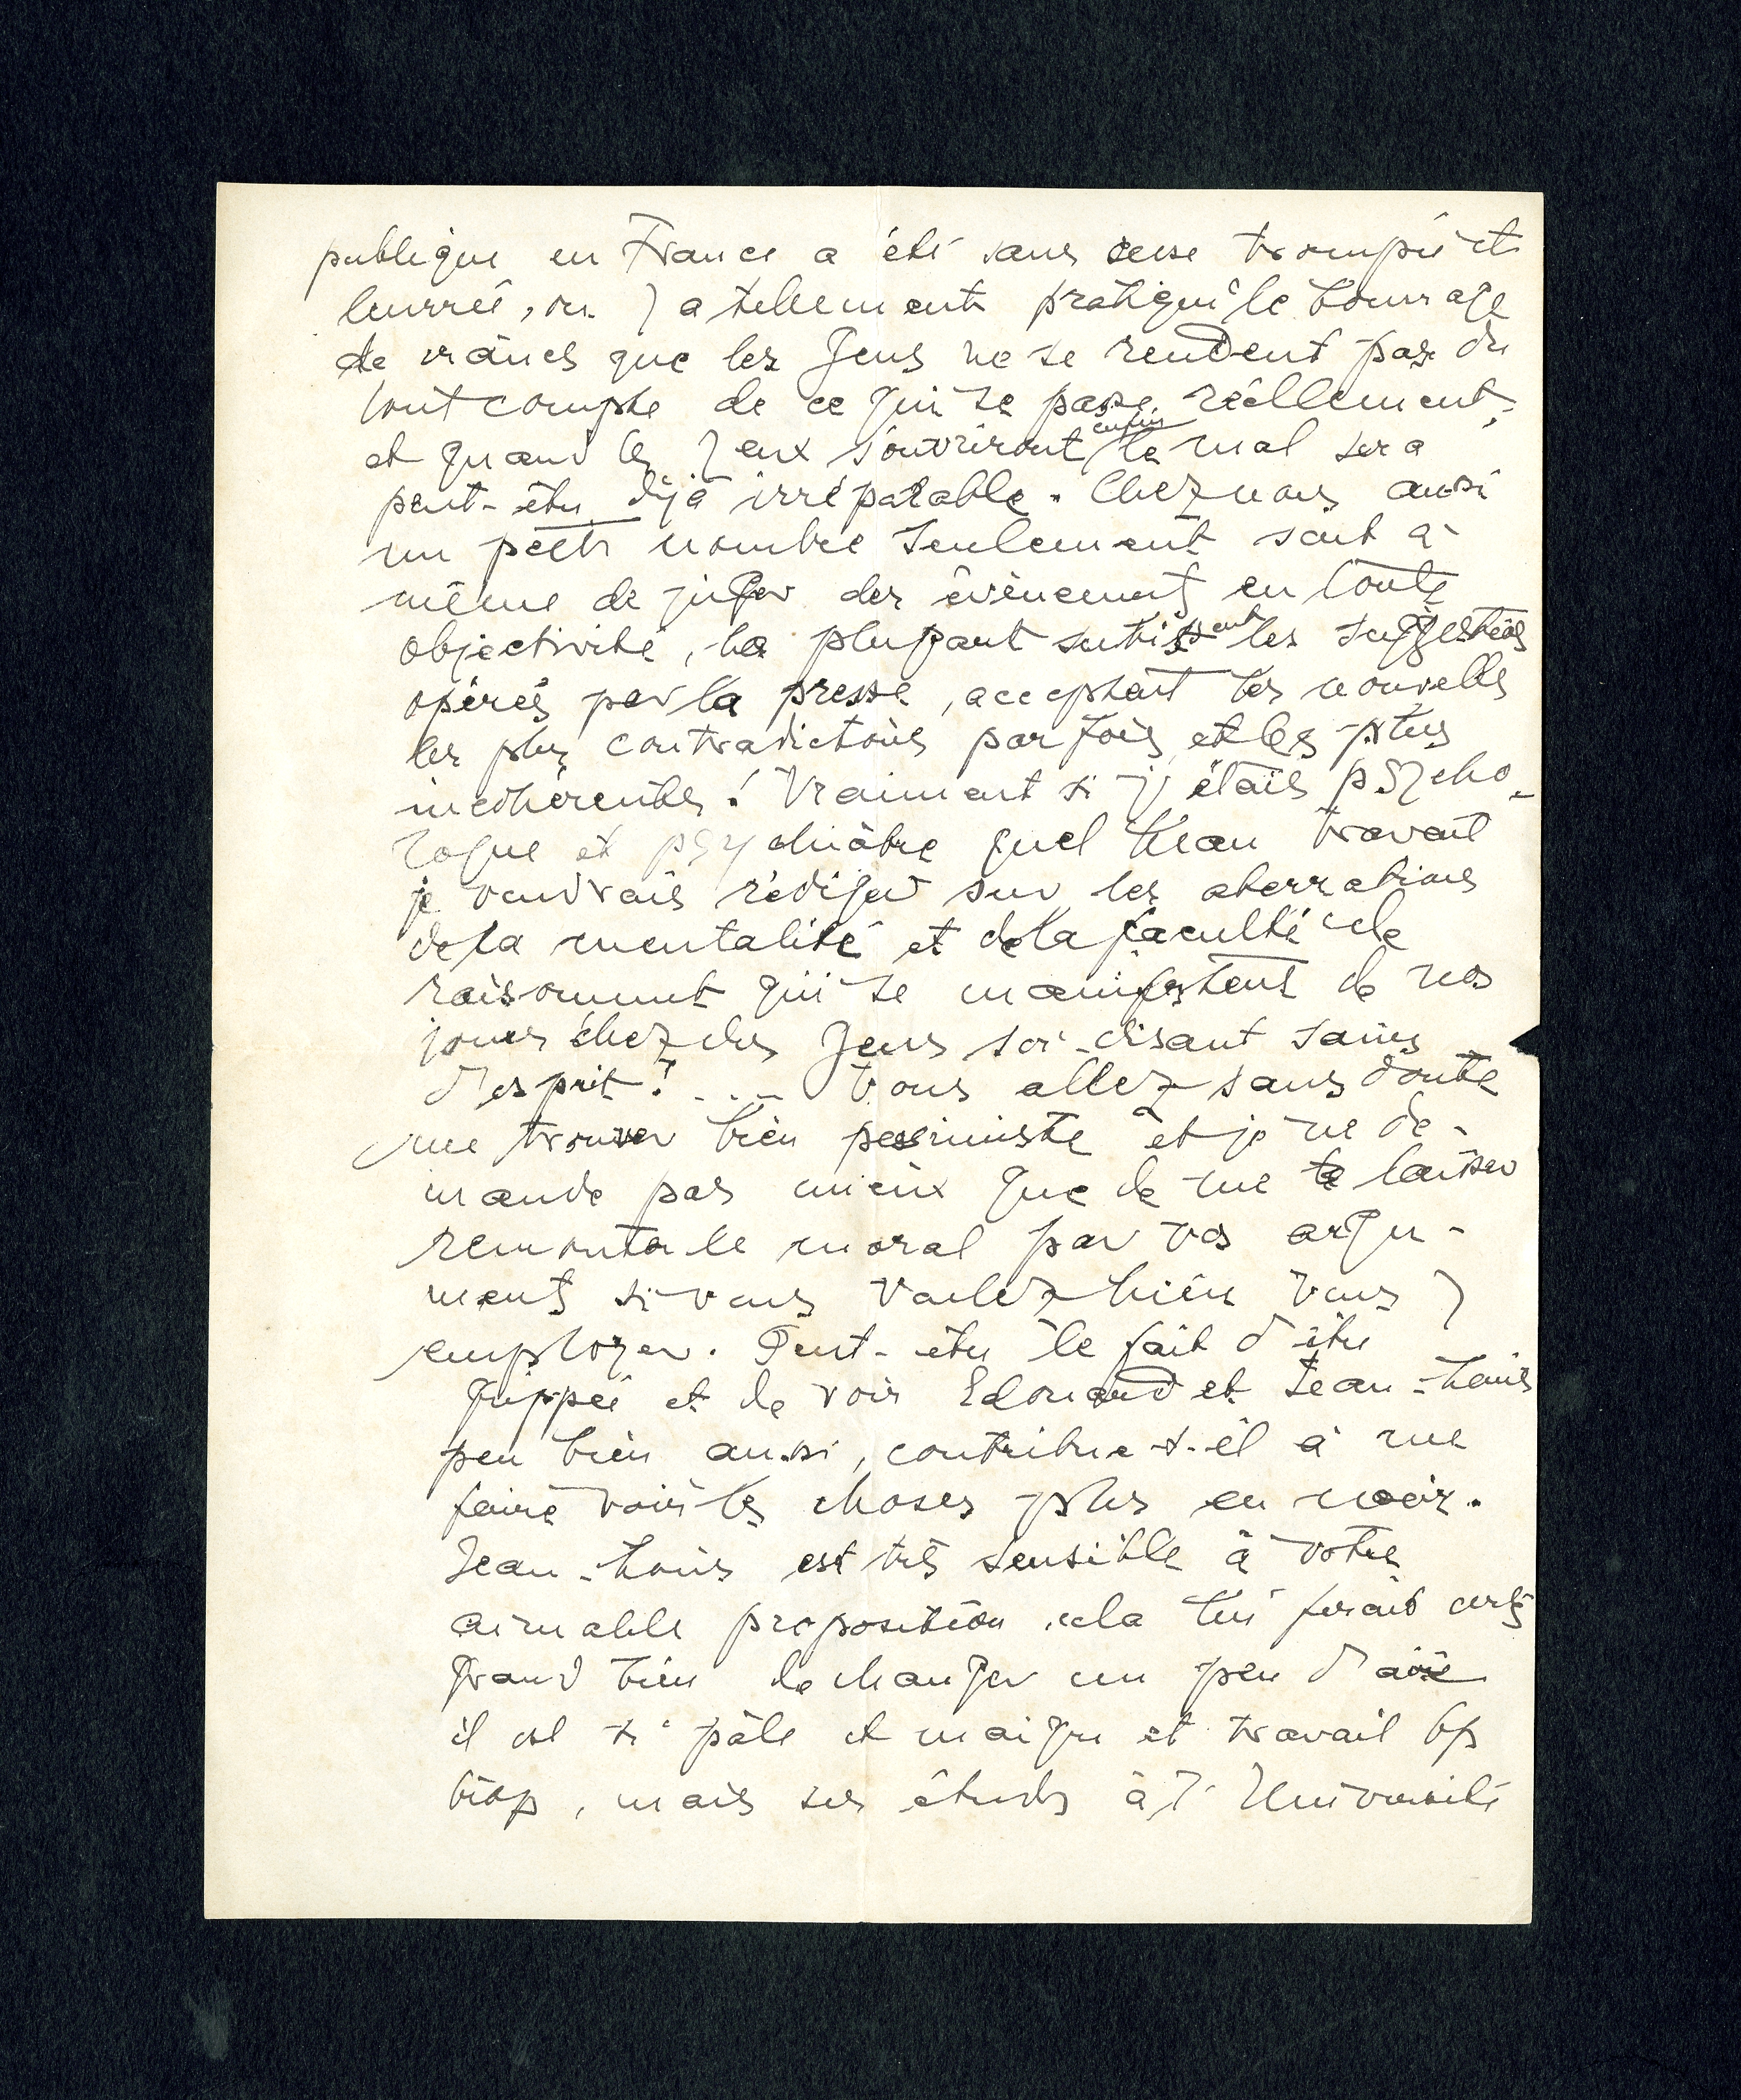 publique en France a été sans cesse trompée et
leurrée, on y a tellement pratiqué le bourrage
de crânes que les gens ne se rendent pas du
tout compte de ce qui se passe réellement,
et quand les yeux s'ouvriront enfin le mal sera
peut-être déjà irréparable. Chez nous aussi
un petit nombre seulement sont à
même de juger des évènements en toute
objectivité, la plupart subissent les suggestions
opérées par la presse, acceptant les nouvelles
les plus contradictoires parfois et les plus
incohérentes! Vraiment si j'étais psycho-
logue et psychiâtre quel beau travail
je voudrais rédiger sur les aberrations
de la mentalité et de la faculté de
raisonnement qui se manifestent de nos
jours chez des gens soi-disant sains
d'esprit! ... Vous allez sans doute
me trouver bien pessimiste et je ne de-
mande pas mieux que de me laisser
remonter le moral par vos argu-
ments si vous voulez bien vous y
employer. Peut-être le fait d'être
grippée et de voir Edouard et Jean-Louis
peu bien aussi, contribue-t-il à me
faire voir les choses plus en noir.
Jean-Louis est très sensible à votre
aimable proposition, cela lui ferait certes
grand bien de changer un peu d'air
il est si pâle et maigre et travail bp
trop, mais ses études à l'Université